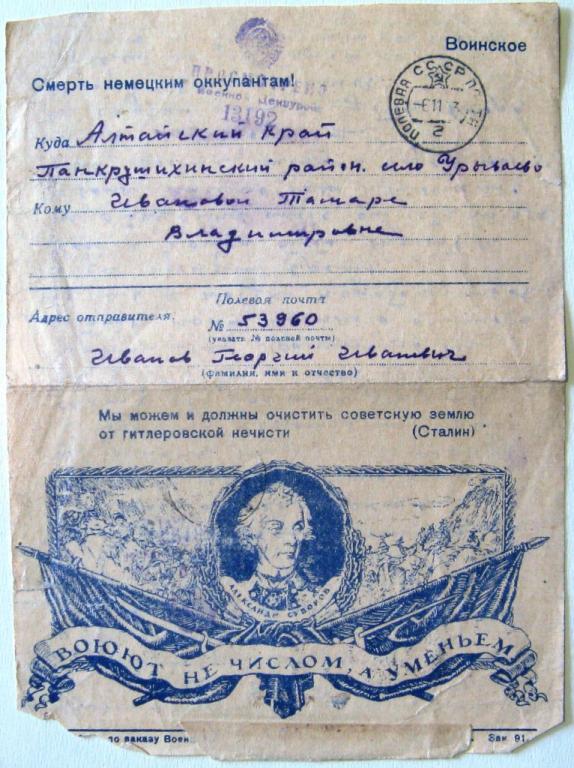 Воинское
Смерть немецким оккупантам!
ПРОСМОТРЕНО
Военной Цензурой
13192
ПОЛЕВАЯ СССР ПОЧТА
Куда Алтайский край
Панкрушихинский район. село Урываево
Кому Ивановой Тамаре
Владимировне
Полевая почта
Адрес отправителя: № 53960
(указать № полевой почты)
Иванов Георгий Иванович
(фамилия, имя и отчество)
Мы можем и должны очистить советскую землю
от гитлеровской нечисти (Сталин)
АЛЕКСАНДР СУВОРОВ
ВОЮЮТ НЕ ЧИСЛОМ, А УМЕНЬЕМ
по заказу Воен. Зак. 91